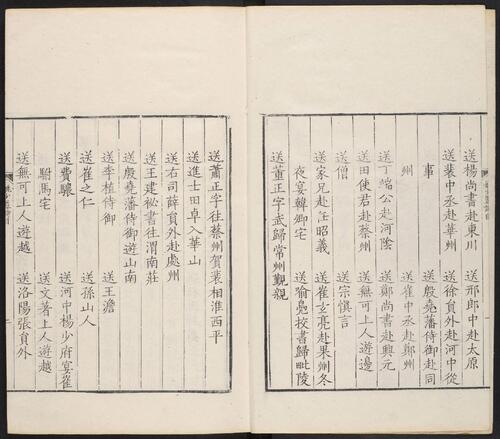 送楊尚書赴東川 送邢郎中赴太原
送裴中丞赴華州 送徐員外赴河中從
事 送殷堯藩侍御赴同
州 送崔中丞赴鄭州
送丁端公赴河陰 送鄭尚書赴興元
送田使君赴蔡州 送無可上人遊邊
送僧 送宗慎言
送家兄赴任昭義 送崔玄亮赴果州冬
夜宴韓卿宅 送喻鳧校書歸毗陵
送董正字武歸常州覲親
送蕭正字往蔡州賀裴相淮西平
送進士田卓入華山
送右司薛員外赴處州
送王建祕書往渭南莊
送殷堯藩侍御遊山南
送李植侍御 送王澹
送崔之仁 送孫山人
送費驤 送河中楊少府宴崔
駙馬宅 送文著上人遊越
送無可上人遊越 送洛陽張員外